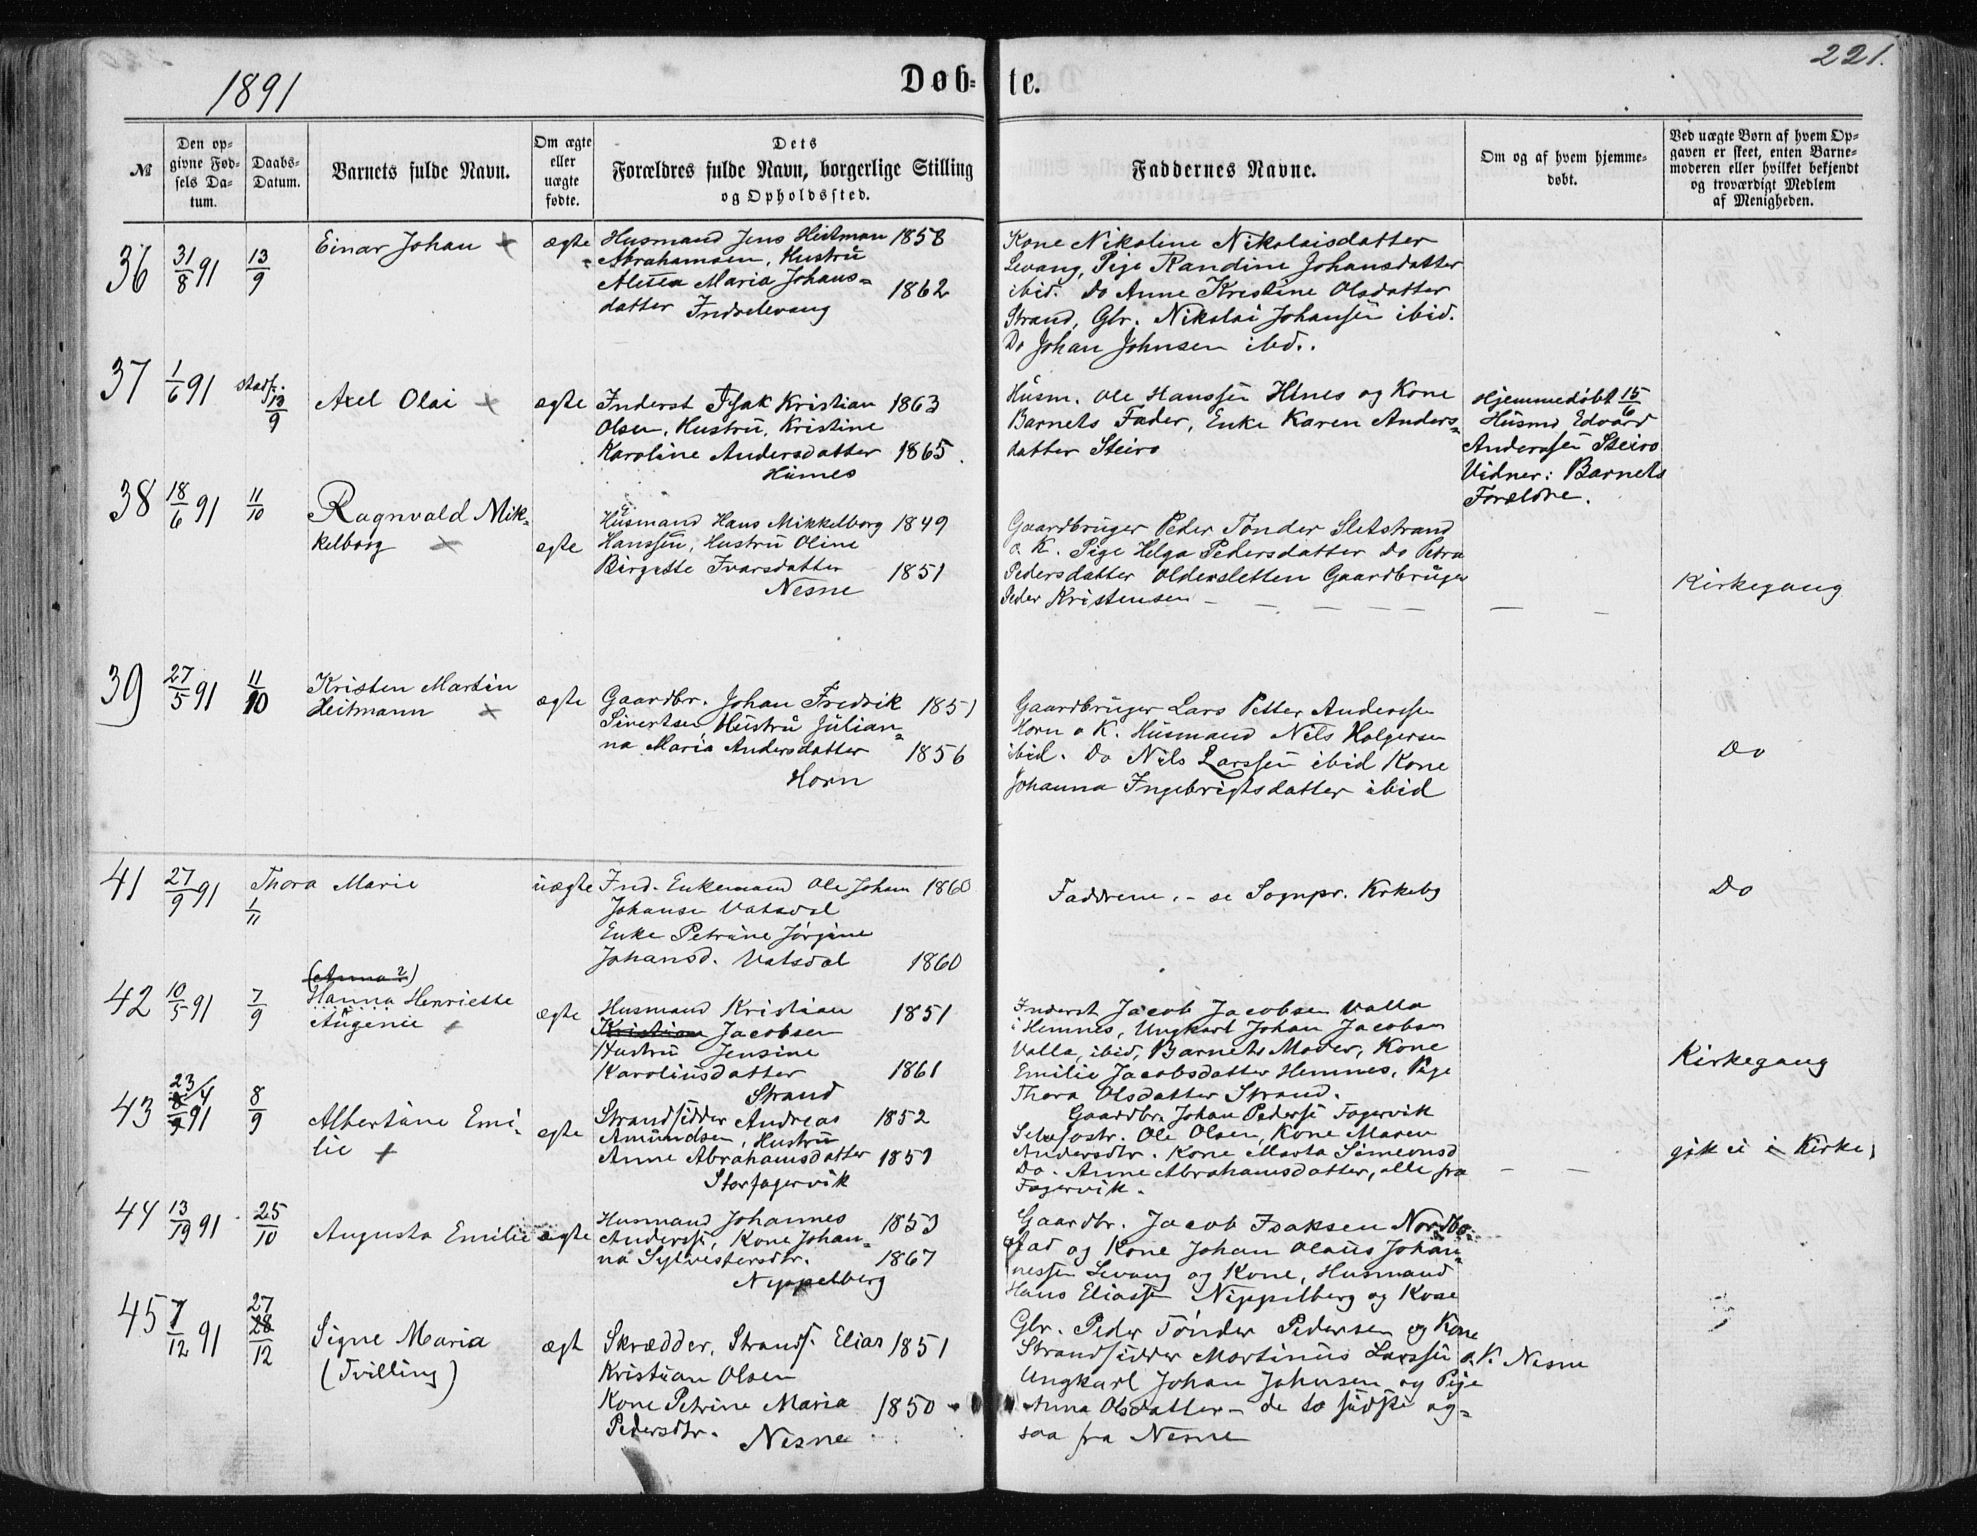 1891
Døb-
te.
221.
№
Den op-
givne Fød-
sels Da-
tum.
Daabs-
Datum.
Barnets fulde Navn.
Om ægte
eller
uægte
fødte.
Dets
Forældres fulde Navn, borgerlige Stilling
og Opholdssted.
Faddernes Navne.
Om og af hvem hjemme-
døbt.
Ved uægte Børn af hvem Op-
gaven er skeet, enten Barne-
moderen eller hvilket bekjendt
og troværdigt Medlem
af Menigheden.
36 31/8 91 13/9 Einar Johan + ægte
Husmand Jens Heitman 1858
Abrahamsen, Hustru
Maria Johans= 1862
datter
Kone Nikoline Nikolaisdatter
Levang, Pige Randine Johansdatter
ibid. Do Anne Kristine Olsdatter
Strand, Gbr. Nikolai Johansen ibid.
Do Johan Johnsen ibd..
37 1/6 91 stadf. 13/9 Axel Olai + ægte
Inderst Isak Kristian 1863
Olsen, Hustru, Kristine
Karoline Andersdatter 1865.
Husm. Ole Hanssen Hines og Kone
Barnets Fader, Enke Karen Anders=
datter Steiro
Hjemmedøbt 15/6
Husmd Edvard
Anderssen Steiro
Vidner: Barnets
Forældre.
38 18/6 91 11/10 Ragnvald Mik-
kelborg + ægte
Husmand Hans Mikkelborg 1849
Hanssen, Hustru Oline
Birgitte Ivarsdatter 1851
Nesne
Gaardbruger Peder Tønder Sletstrand
o K. Pige Helga Pedersdatter Do Petra
Pedersdatter Oldersletten Gaardbruger
Peder Kristensen - - - - - - -
Kirkegang
39 27/5 91 11/10 Kristen Martin
Heitmann + ægte
Gaardbr. Johan Fredrik 1851
Sivertsen, Hustru Julian=
na Maria Andersdatter 1856
Horn
Gaardbruger Lars Petter Anderssen
Horn o K. Husmand Nils Holgersen
ibid. Do Nils Larssen ibid Kone
Johanna Ingebrigtsdatter ibid
Do
41 27/9 91 Thora Marie uægte
1/11
Ind. Enkemand Ole Johan 1860
Johanse Vatsdal
Enke Petrine Jørgine
Johansd. Vatsdal 1860
Faddrene, - se Sognpr. Kirkebg
Do
42 10/5 91 7/9 (Anna?)
Hanna Henriette
Augenie + ægte
Husmand Kristian 1851
Kristian Jacobsen
Hustru Jensine
Karoliusdatter 1861
Strand
Inderst Jacob Jacobsen Valla
i Hemnes, Ungkarl Johan Jacobsen
Valla, ibid, Barnets Moder, Kone
Emilie Jacobsdatter Hemnes, Pige
Thora Olsdatter Strand.
Kirkegang
43 23/4 91 8/9 Albertine Emi-
lie + ægte
Strandsidder Andreas 1852
Amundsen, Hustru
Anne Abrahamsdatter 1851
Storfagervik
Gaardbr. Johan Pederse Fagervik
Ole Olsen, Kone Maren
Andersdtr. Kone Marta Simeonsd
Do. Anne Abrahamsdatter, alle fra
Fagervik.
gik ei i Kirke
44 13/19 91 25/10 Augusta Emilie ægte
Husmand Johannes 1853
Anderss, Kone Johan=
na Sylvestersdtr. 1867
Nyppelberg
Gaardbr. Jacob Isaksen Nordbo-
stad og Kone Johan Olaus Johan=
nessen Levang og Kone, Husmand
Hans Eliass Nippelberg og Kone
45 1/12 91 27/12 Signe Maria
(Tvilling) ægt
Skrædder, Strands. Elias 1851
Kristian Olsen
Kone Petrine Maria 1850
Pedersdtr. Nesne
Gbr. Peder Tønder Pedersen og Kone
Strandsidder Martinus Larssen o. K. Nesne
Ungkarl Johan Johnsen og Pige
Anna Olsdatter - de to sidste og=
saa fra Nesne